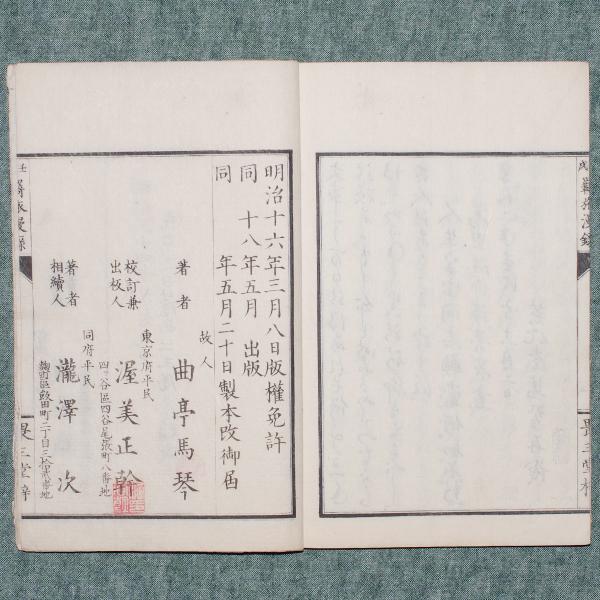 明治十六年三月八日版權免許
同　十八年五月　出版
同　　年五月二十日製本改御届
故人
著者　曲亭馬琴
東京府平民
四ッ谷區四谷尾張町八番地
校訂兼
出板人　渥美正幹
同府平民
麹町區飯田町二丁目三拾貮番地
著者
相續人　瀧澤次